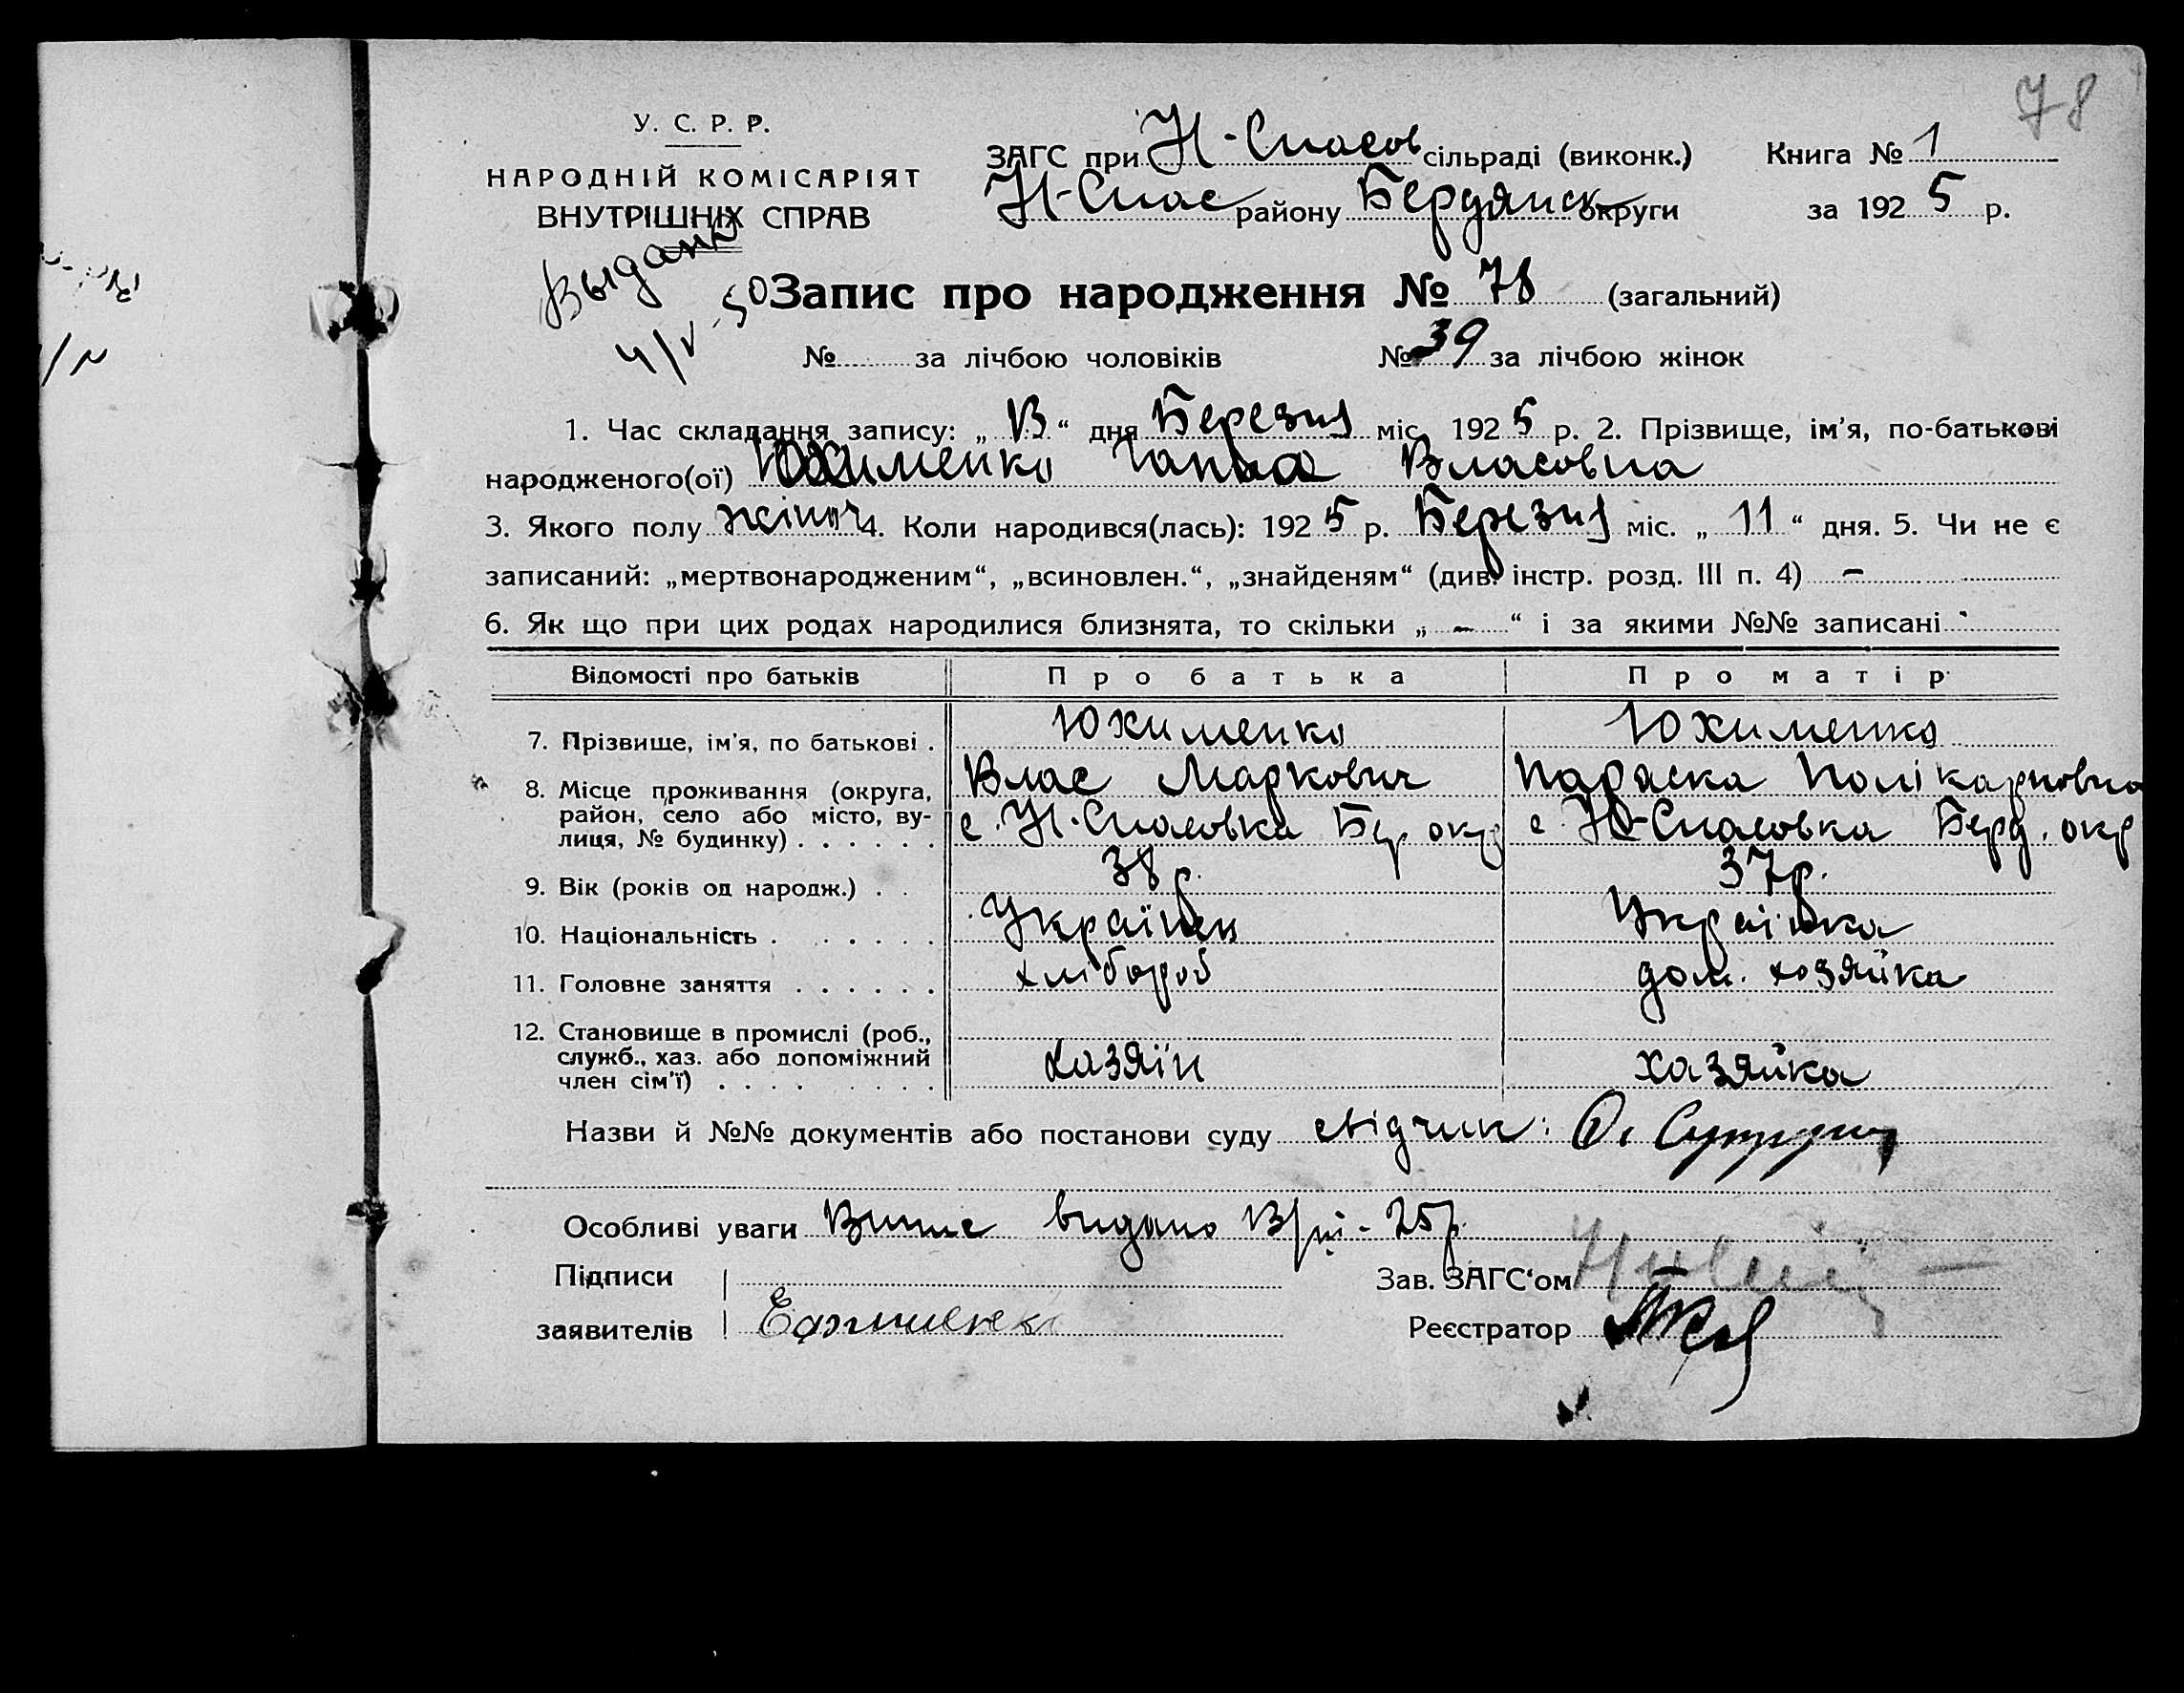 78
У. С. Р. Р.
НАРОДНІЙ КОМІСАРІЯТ
ВНУТРІШНІХ СПРАВ
ЗАГС при Н-Спасов сільраді (виконк.) Книга № 1
Н-Спас району Бердянск округи за 1925 р.
Выдано
4/V-50
Запис про народження № 78 (загальний)
№ за лічбою чоловіків № 39 за лічбою жінок
1. Час складання запису: „13“ дня Березня міс. 1925 р. 2. Прізвище, ім'я, по-батькові
народженого(ої) Юхименко Ганна Власовна
3. Якого полу жіноч 4. Коли народився(лась): 1925 р. Березня міс. „11“ дня. 5. Чи не є
записаний: „мертвонародженим“, „всиновлен.“, „знайденям“ (див. інстр. розд. III п. 4) –
6. Як що при цих родах народилися близнята, то скільки „–“ і за якими №№ записані
Відомості про батьків Про батька Про матір
7. Прізвище, ім'я, по батькові . Юхименко Юхименко
Влас Маркович Параска Полікарповна
8. Місце проживання (округа, район, село або місто, вулиця, № будинку) . . . . . . с. Н.-Спасовка Бер окр с Н-Спасовка Берд. окр
9. Вік (років од народж.) . . 38 р. 37 р.
10. Національність . . . . . . Українец Українка
11. Головне заняття . . . . . . хлібороб дом. хозяйка
12. Становище в промислі (роб., служб., хаз. або допоміжний член сім'ї) . . . . . . . . . хазяїн хазяйка
Назви й №№ документів або постанови суду свідчик: О.
Особливі уваги Випис видано 13/III-25р.
Підписи Зав. ЗАГС'ом
заявителів Ефименко Реєстратор